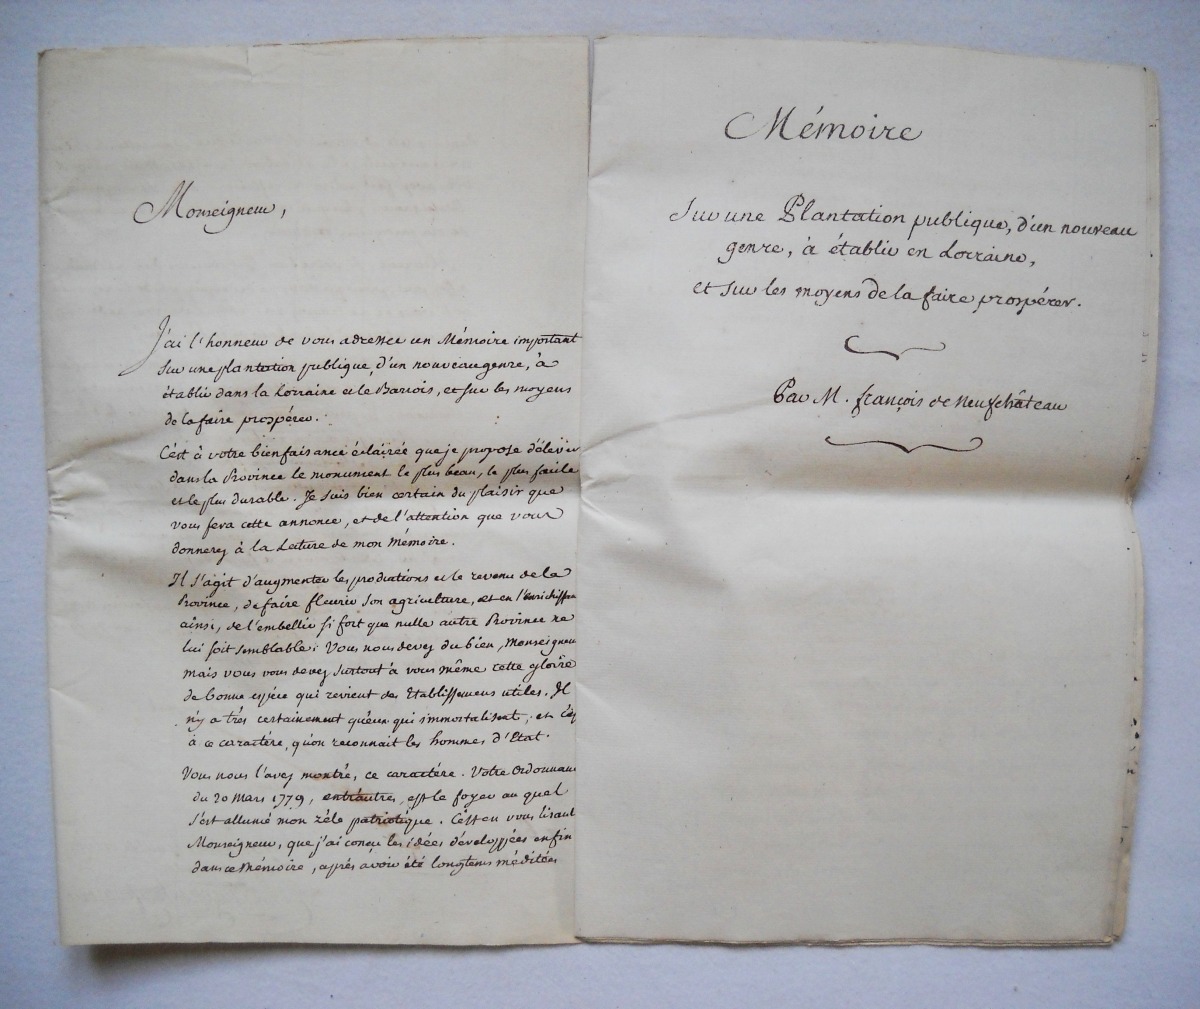 Monseigneur,
J'ai l'honneur de vous adresser un Mémoire important
sur une plantation publique, d'un nouveau genre, à
établir dans la Lorraine et le Barrois, et sur les moyens
de la faire prospérer.
C'est à votre bienfaisance éclairée que je propose d'élever
dans la Province le monument le plus beau, le plus facile
et le plus durable. Je suis bien certain du plaisir que
vous fera cette annonce, et de l'attention que vous
donnerez à la Lecture de mon Mémoire.
Il s'agit d'augmenter les productions et le revenu de la
Province, de faire fleurir son agriculture, et en l'enrichissa
ainsi, de l'embellir si fort que nulle autre Province ne
lui soit semblable: Vous nous devez du bien, Monseigneu
mais vous vous devez surtout à vous même cette gloire
de bonne espèce qui revient des Etablissemens utiles. Il
n'y a très certainement qu'eux qui immortalisent; et c'es
à ce caractère, qu'on reconnait les hommes d'Etat.
Vous nous l'avez montré, ce caractère. Votre Ordonnan
du 20 Mars 1779, entr'autres, est le foyer au quel
s'est allumé mon zèle patriotique. C'est en vous lisant
Monseigneur, que j'ai conçu les idées développées enfin
dans ce Mémoire, après avoir été longtems méditées
Mémoire
Sur une Plantation publique, d'un nouveau
genre, à établir en Lorraine,
et sur les moyens de la faire prospérer.
Par M. françois de Neufchâteau